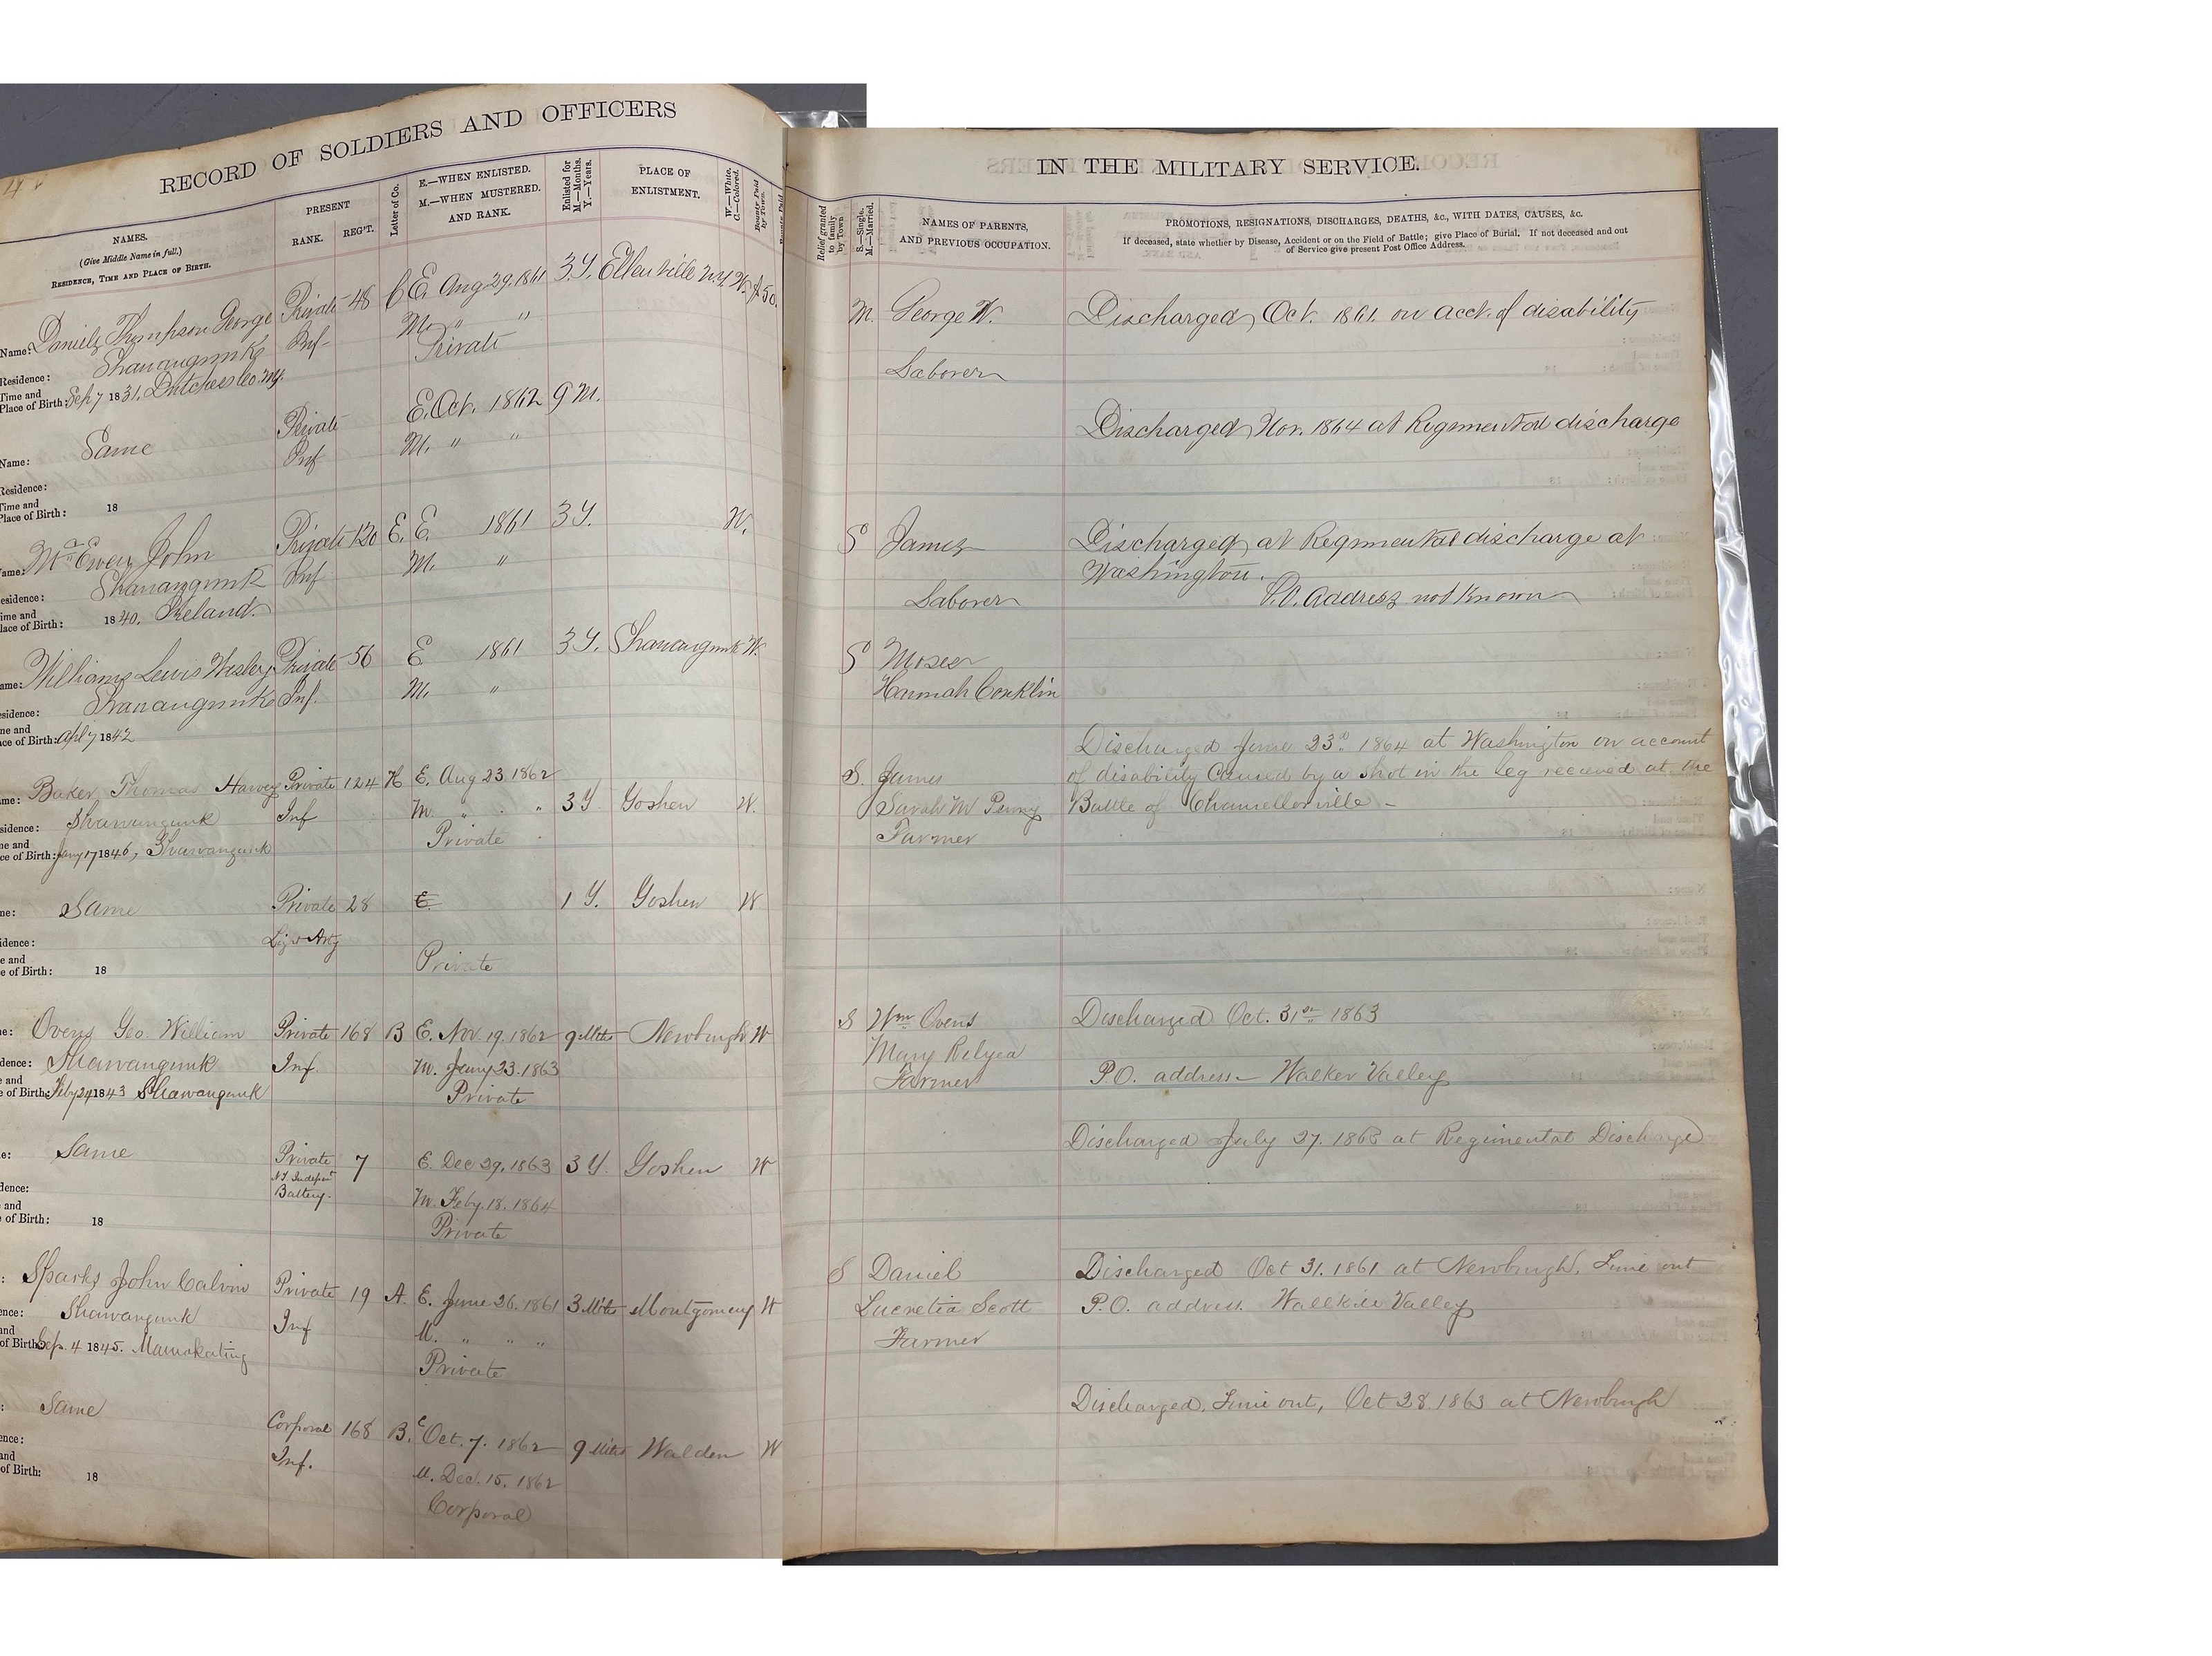 14
RECORD OF SOLDIERS AND OFFICERS
NAMES.
(Give Middle Name in full.)
RESIDENCE, TIME AND PLACE OF BIRTH.
PRESENT
RANK.
REG'T.
Letter of Co.
E.—WHEN ENLISTED.
M.—WHEN MUSTERED.
AND RANK.
Enlisted for
M.—Months.
Y.—Years.
PLACE OF
ENLISTMENT.
W.—White.
C.—Colored.
Bounty Paid
by Town.
Name: Daniels Thompson George Private 48 C E. Aug 29. 1861 3 Y. Ellenville N.Y. W. $50.
Inf M. " "
Residence: Shawangunk Private
Time and
Place of Birth: Sep 7 1831, Dutchess Co. N.Y.
Name: Same Private E. Oct. 1862 9 M.
Inf M. " "
Residence:
Time and
Place of Birth: 18
Name: McEwen John Private 120 E. E. 1861 3 Y. W.
Residence: Shawangunk Inf M. "
Time and
Place of Birth: 1840. Ireland
ame: Williams Lewis Wesley Private 56 E 1861 3 Y. Shawangunk W.
esidence: Shawangunk Inf. M. "
me and
ace of Birth: Apl 7 1842
me: Baker Thomas Harvey Private 124 K E. Aug 23 1862
Inf M. " " " 3 Y Goshen W.
sidence: Shawangunk Private
ne and
ce of Birth: Jany 17 1846, Shawangunk
ne: Same Private 28 E. 1 Y. Goshen W
Lig't Arty
idence:
e and
e of Birth: 18 Private
ne: Ovens Geo. William Private 168 B E. Nov. 19. 1862 9 Mths Newburgh W
dence: Shawangunk Inf M. Jany 23. 1863
e and Private
e of Birth: Feby 24 1843 Shawangunk
e: Same Private 7 E. Dec 29, 1863 3 Y. Goshen W
Battery.
dence: M. Feby. 18. 1864
and
of Birth: 18 Private
: Sparks John Calvin Private 19 A. E. June 26. 1861 3 Mths Montgomery W
ence: Shawangunk Inf M. " " "
and
of Birth: Sep. 4 1845. Mamakating Private
: Same Corporal 168 B. E Oct. 7. 1862 9 Mths Walden W
ence: Inf. M. Dec. 15. 1862
and
of Birth: 18 Corporal
IN THE MILITARY SERVICE.
Relief granted
to family
by Town
S.—Single.
M.—Married.
NAMES OF PARENTS,
AND PREVIOUS OCCUPATION.
PROMOTIONS, RESIGNATIONS, DISCHARGES, DEATHS, &c., WITH DATES, CAUSES, &c.
If deceased, state whether by Disease, Accident or on the Field of Battle; give Place of Burial. If not deceased and out
of Service give present Post Office Address.
M. George W. Discharged Oct. 1861. on acct. of disability
Laborer
Discharged Nov. 1864 at Regimental discharge
S James Discharged at Regimental discharge at
Washington.
Laborer P.O. Address not Known
S Moses
Hannah Conklin
Discharged June 23d. 1864 at Washington on account
S. James of disability Caused by a shot in the leg recieved at the
Sarah M Battle of Chancellorville -
Farmer
S Wm Ovens Discharged Oct. 31st 1863
Mary Relyea
Farmer P.O. address - Walker Valley
Discharged July 27. 1863 at Regimental Discharge
S Daniel Discharged Oct 31. 1861 at Newburgh. Time out
Lucretia Scott P.O. address Wallkill Valley
Farmer
Discharged, Time out, Oct 28. 1863 at Newburgh